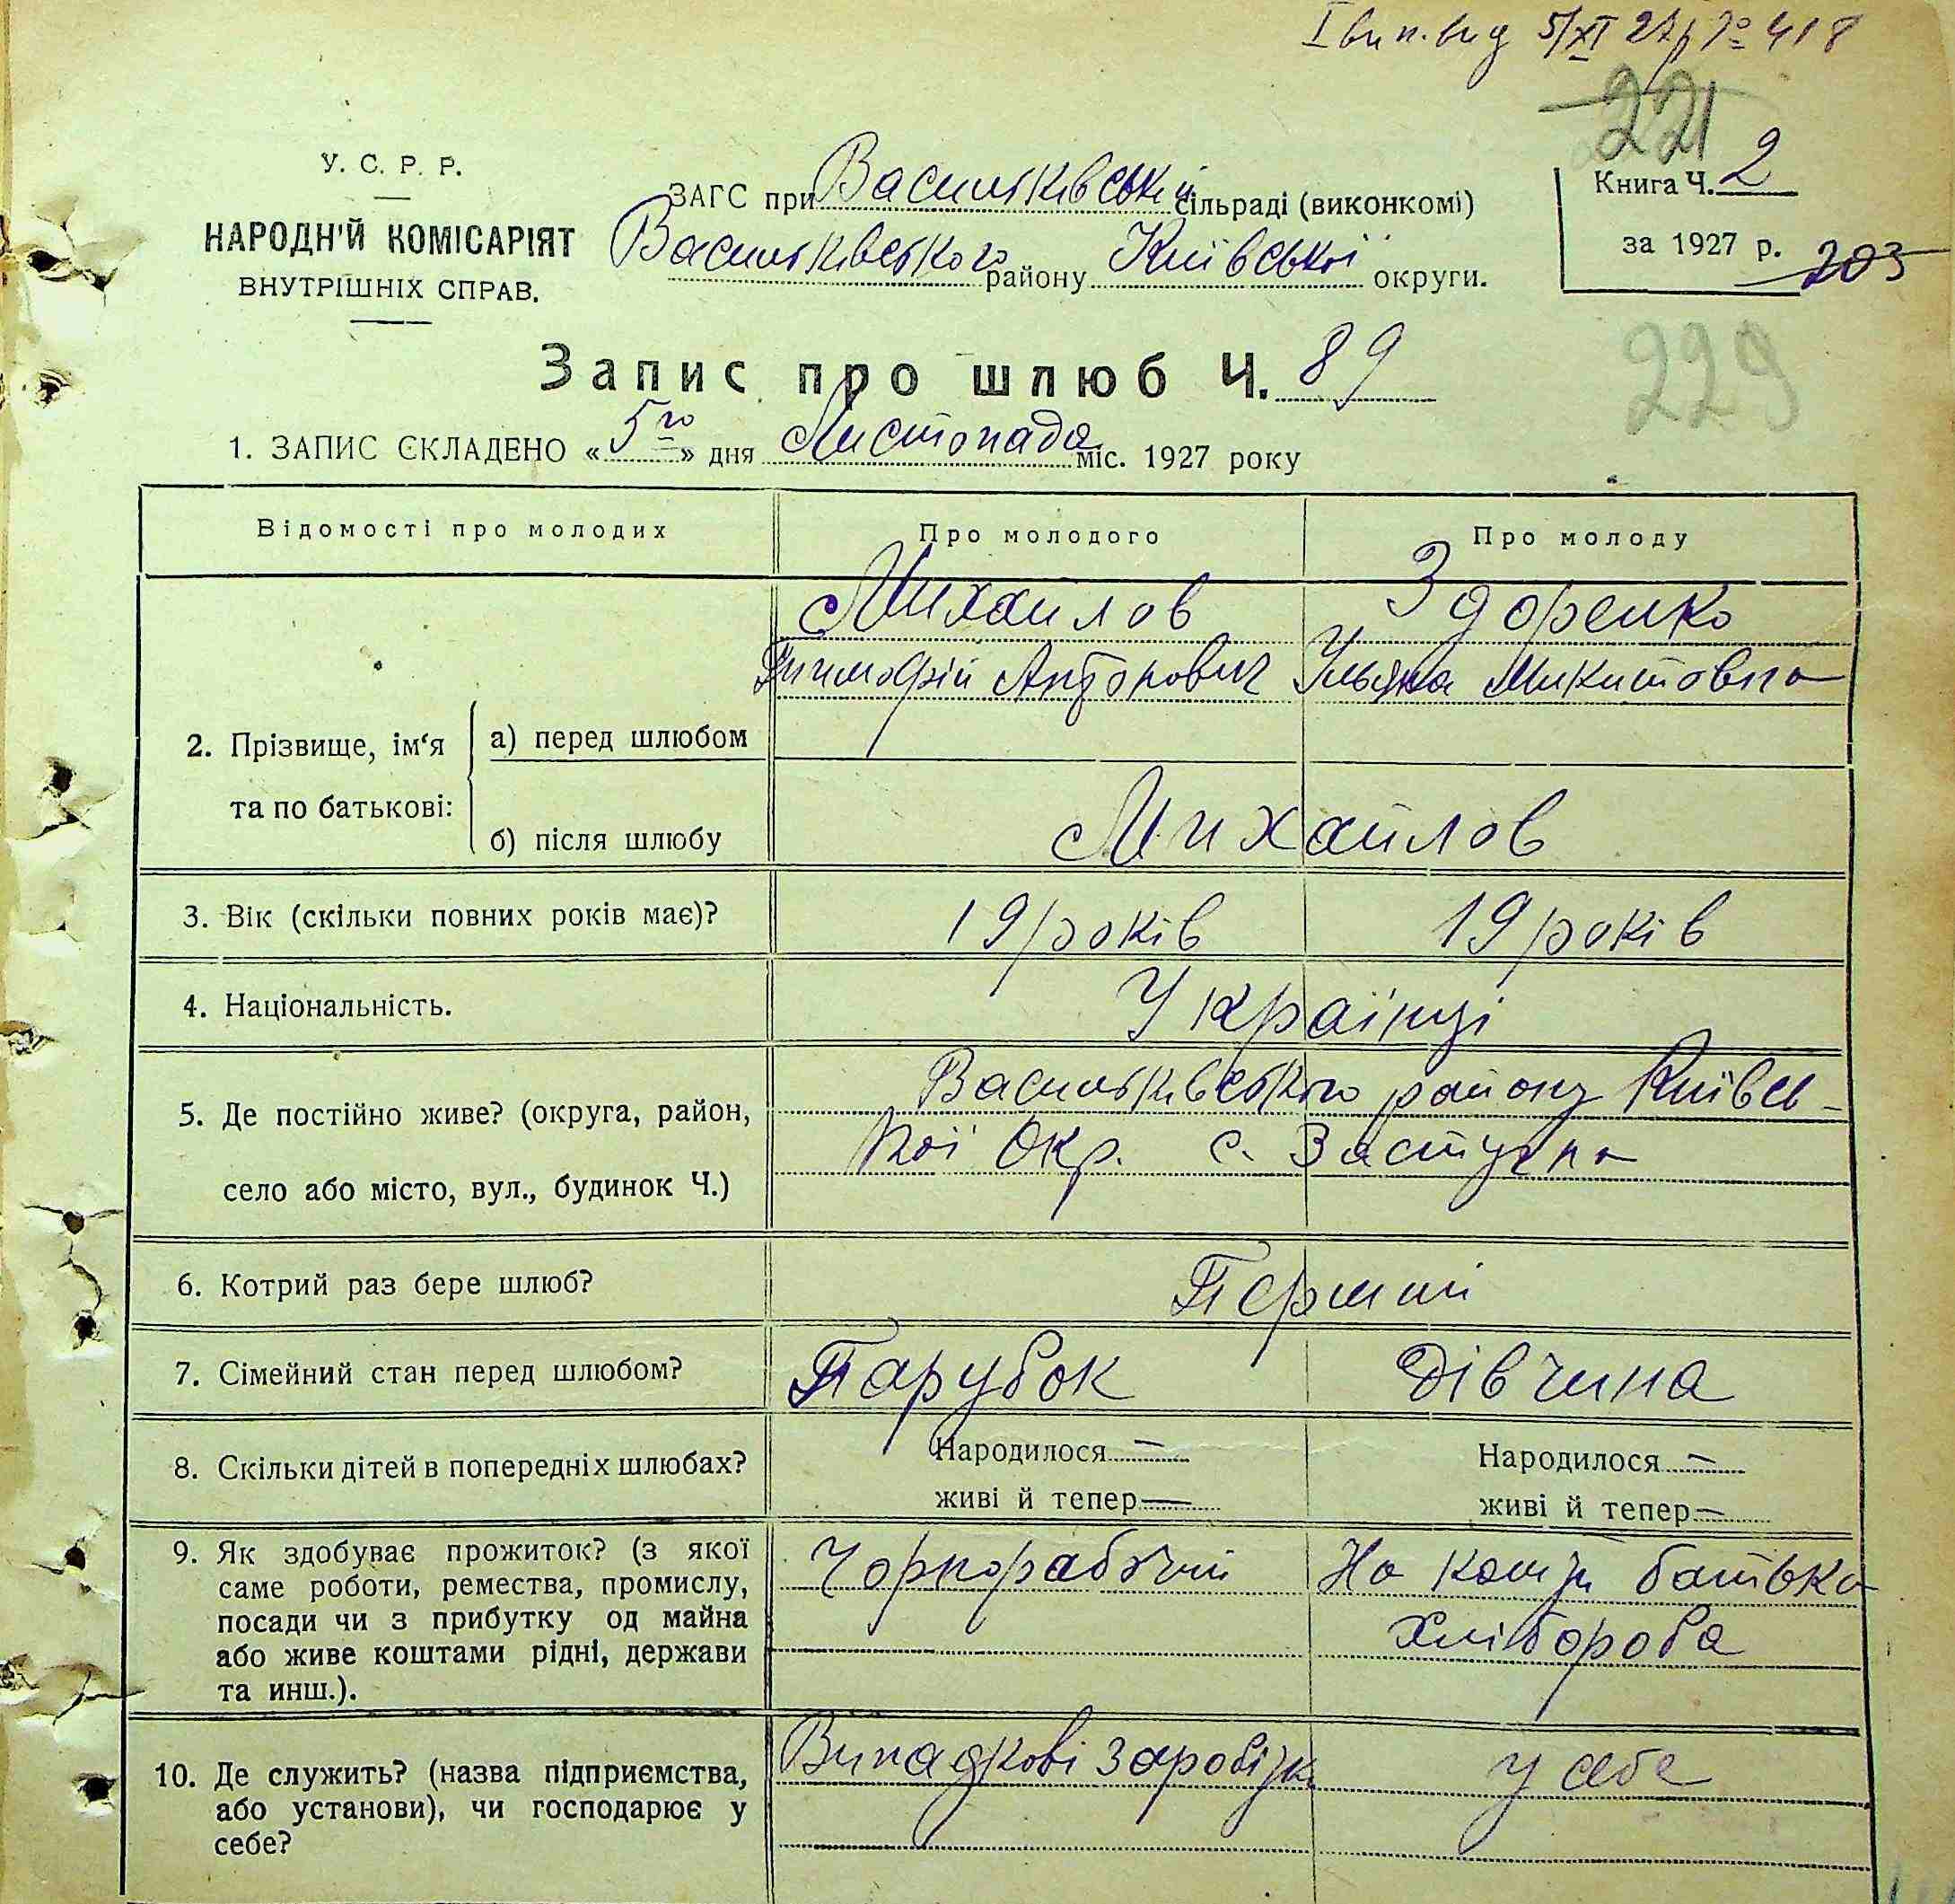 І вип. вид 5/XI 27 р № 418
221
У. С. Р. Р.
НАРОДН'Й КОМІСАРІЯТ
ВНУТРІШНІХ СПРАВ.
ЗАГС при Васильківській сільраді (виконкомі)
Васильківського району Київської округи.
Книга Ч. 2
за 1927 р. 203
229
Запис про шлюб Ч. 89
1. ЗАПИС СКЛАДЕНО «5го» дня Листопада міс. 1927 року
Відомості про молодих Про молодого Про молоду
Михайлов Здоренко
Тимофій Антонович Ульяна Микитовна
2. Прізвище, ім'я та по батькові:
а) перед шлюбом
б) після шлюбу Михайлов
3. Вік (скільки повних років має)? 19 років 19 років
4. Національність. Українці
5. Де постійно живе? (округа, район, Васильківського району Київсь-
село або місто, вул., будинок Ч.) кої Окр. с. Застугна
6. Котрий раз бере шлюб? Перший
7. Сімейний стан перед шлюбом? Парубок Дівчина
8. Скільки дітей в попередніх шлюбах? Народилося — Народилося —
живі й тепер — живі й тепер —
9. Як здобуває прожиток? (з якої Чорноробочий На кошти батька
саме роботи, ремества, промислу, хлібороба
посади чи з прибутку од майна
або живе коштами рідні, держави
та инш.).
10. Де служить? (назва підприємства, Випадкові заробітки у себе
або установи), чи господарює у
себе?